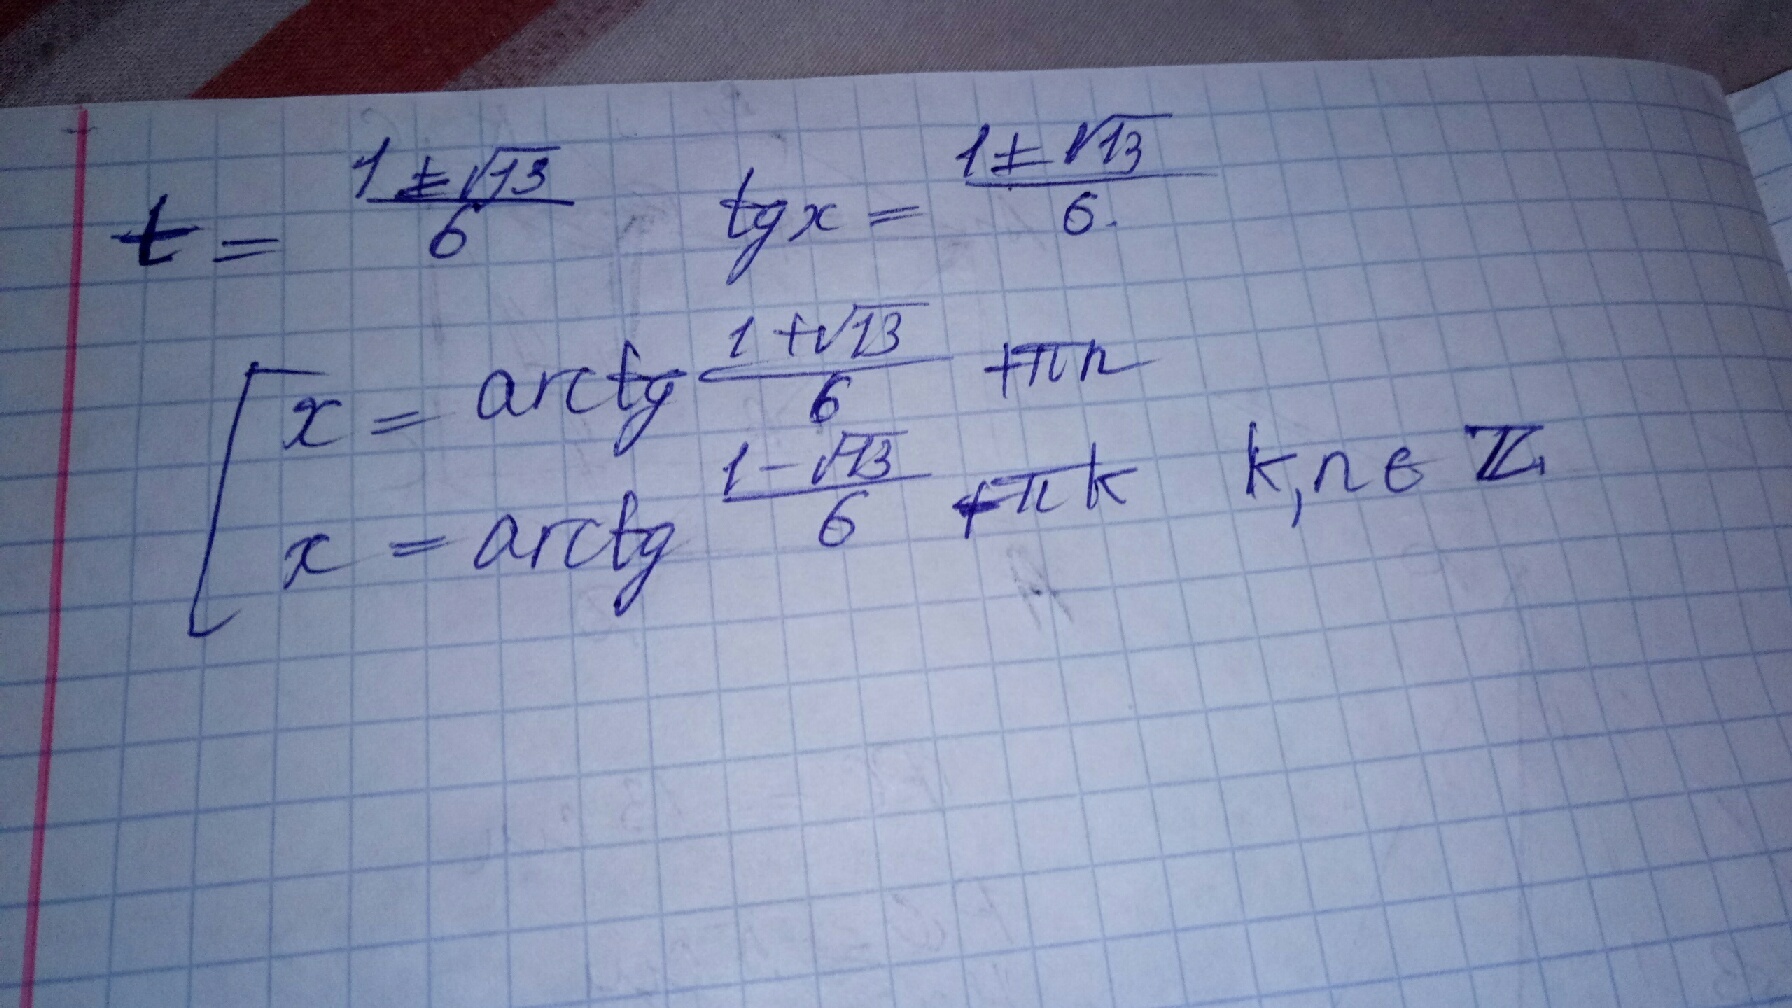 t = (1 ± √13)/6 tg x = (1 ± √13)/6.
[ x = arctg (1 + √13)/6 + πn
x = arctg (1 - √13)/6 + πk k, n ∈ ℤ